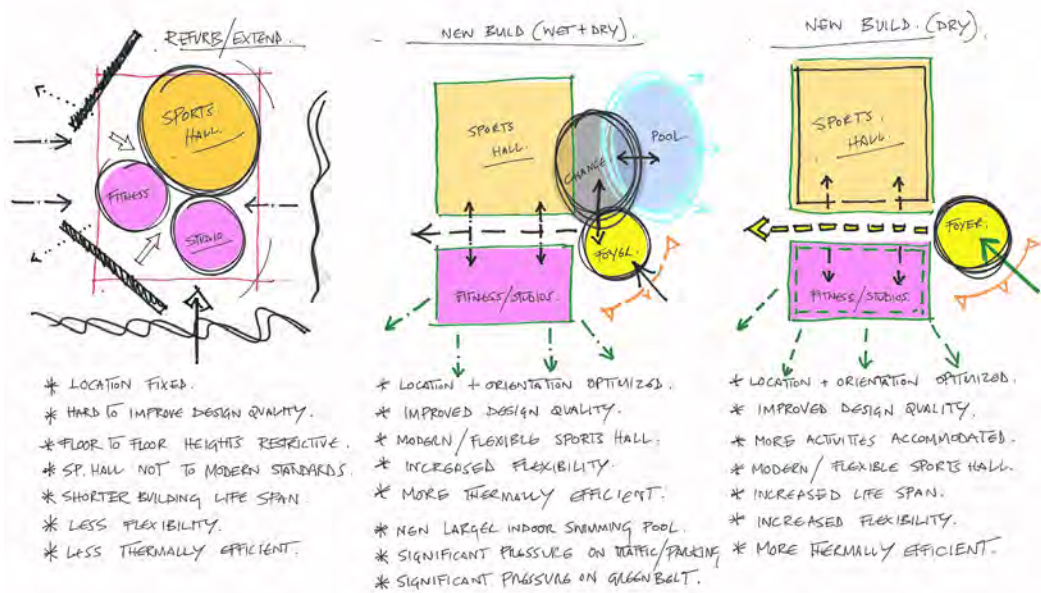 REFURB/EXTEND.
SPORTS
HALL.
FITNESS
STUDIO
* LOCATION FIXED.
* HARD TO IMPROVE DESIGN QUALITY.
* FLOOR TO FLOOR HEIGHTS RESTRICTIVE.
* SP. HALL NOT TO MODERN STANDARDS.
* SHORTER BUILDING LIFE SPAN
* LESS FLEXIBILITY.
* LESS THERMALLY EFFICIENT.
NEW BUILD (WET+DRY).
SPORTS
HALL.
CHANGE
POOL
FOYER
FITNESS/STUDIOS
* LOCATION + ORIENTATION OPTIMIZED.
* IMPROVED DESIGN QUALITY.
* MODERN/FLEXIBLE SPORTS HALL.
* INCREASED FLEXIBILITY.
* MORE THERMALLY EFFICIENT.
* NEW LARGER INDOOR SWIMMING POOL.
* SIGNIFICANT PRESSURE ON TRAFFIC/PARKING
* SIGNIFICANT PRESSURE ON GREENBELT.
NEW BUILD. (DRY)
SPORTS.
HALL
FOYER.
FITNESS/STUDIOS.
* LOCATION + ORIENTATION OPTIMIZED.
* IMPROVED DESIGN QUALITY.
* MORE ACTIVITES ACCOMMODATED.
* MODERN/ FLEXIBLE SPORTS HALL.
* INCREASED LIFE SPAN.
* INCREASED FLEXIBILITY.
* MORE THERMALLY EFFICIENT.